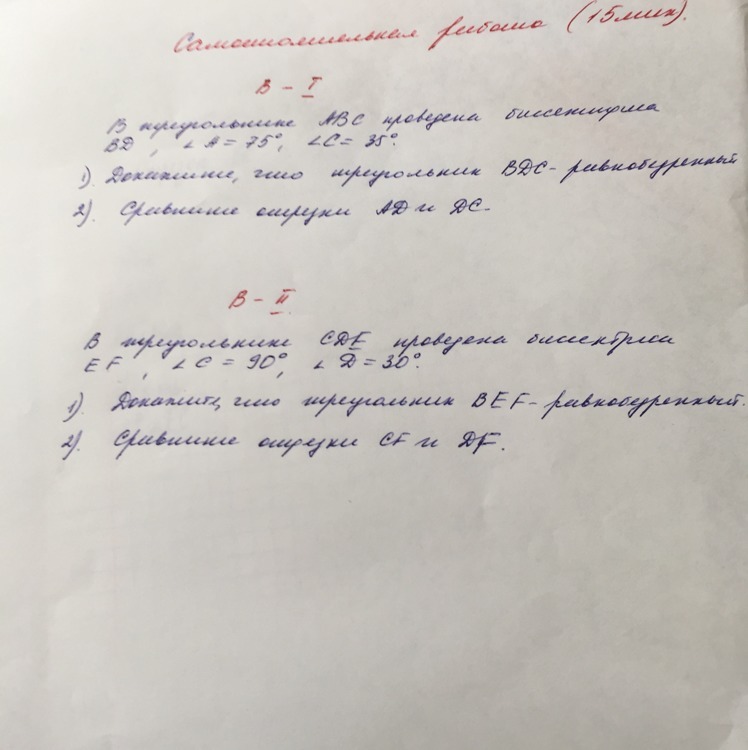 Самостоятельная работа (15 мин).
В - I
В треугольнике ABC проведена биссектриса
BD, ∠A = 75°, ∠C = 35°.
1). Докажите, что треугольник BDC - равнобедренный
2). Сравните отрезки AD и DC.
В - II
В треугольнике CDE проведена биссектриса
EF, ∠C = 90°, ∠D = 30°.
1). Докажите, что треугольник BEF - равнобедренный.
2). Сравните отрезки CF и DF.